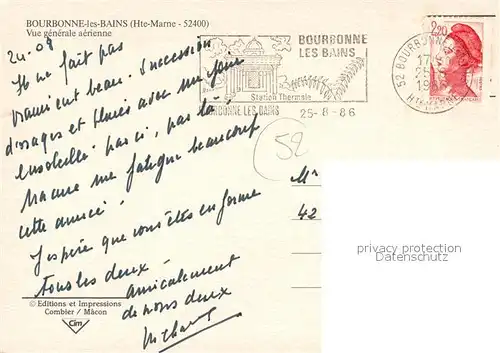 BOURBONNE-les-BAINS (Hte-Marne - 52400)
Vue générale aérienne
24.08
Il ne fait pas
vraiment beau. Succession
d'orages et pluies avec un jour
ensoleillé par ci, par là!
ma cure me fatigue beaucoup
cette année!
J'espère que vous êtes en forme
tous les deux.
Amicalement
de nous deux
© Editions et Impressions
Combier / Mâcon
Cim
BOURBONNE
LES BAINS
Station Thermale
BOURBONNE LES BAINS
25-8-86
52 BOURBONNE
17
25
19
HTE MARNE
2,20
52
M
42
privacy protection